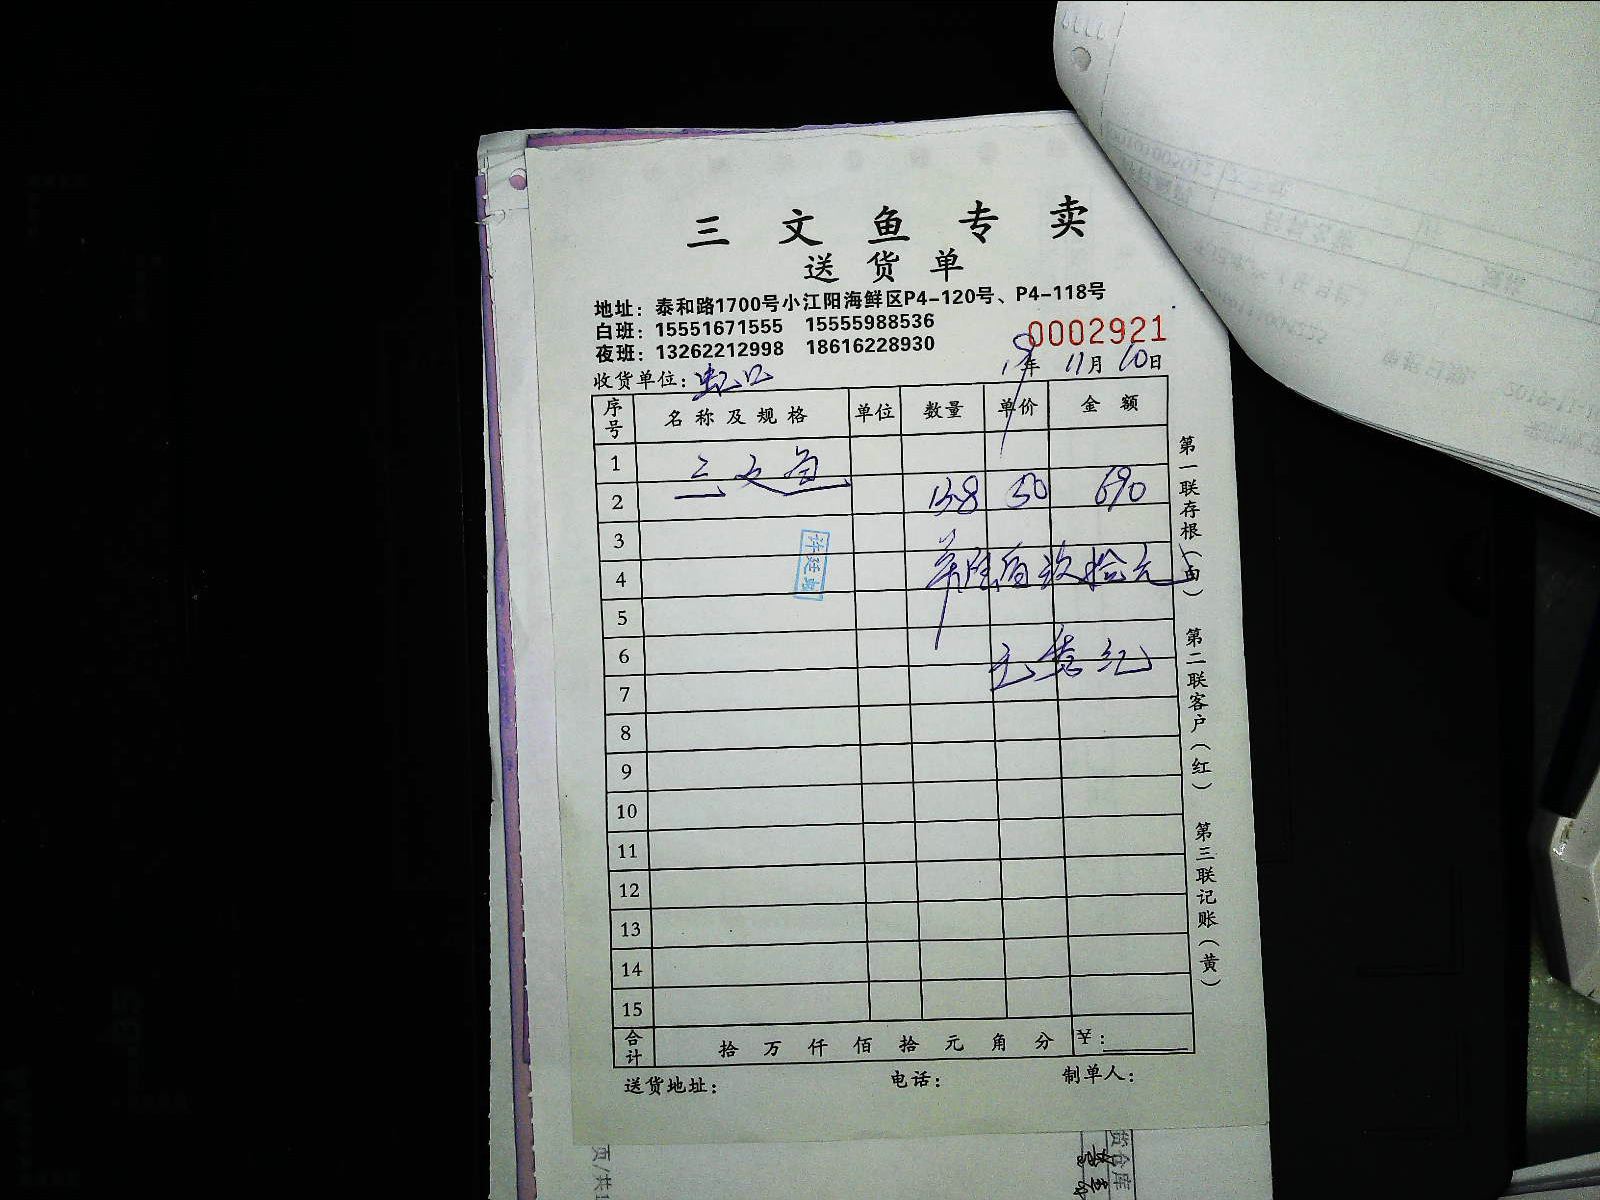 三文鱼专卖
送货单
地址：泰和路1700号小江阳海鲜区P4-120号、P4-118号
白班：15551671555 15555988536
夜班：13262212998 18616228930
0002921
收货单位：虹口
19年 11月 10日
序号 名称及规格 单位 数量 单价 金额
1 三文鱼
2 13.8 50 690
3
4 陆佰玖拾元
5
6
7
8
9
10
11
12
13
14
15
合计 拾 万 仟 佰 拾 元 角 分 ¥：
送货地址： 电话： 制单人：
第一联存根（白） 第二联客户（红） 第三联记账（黄）